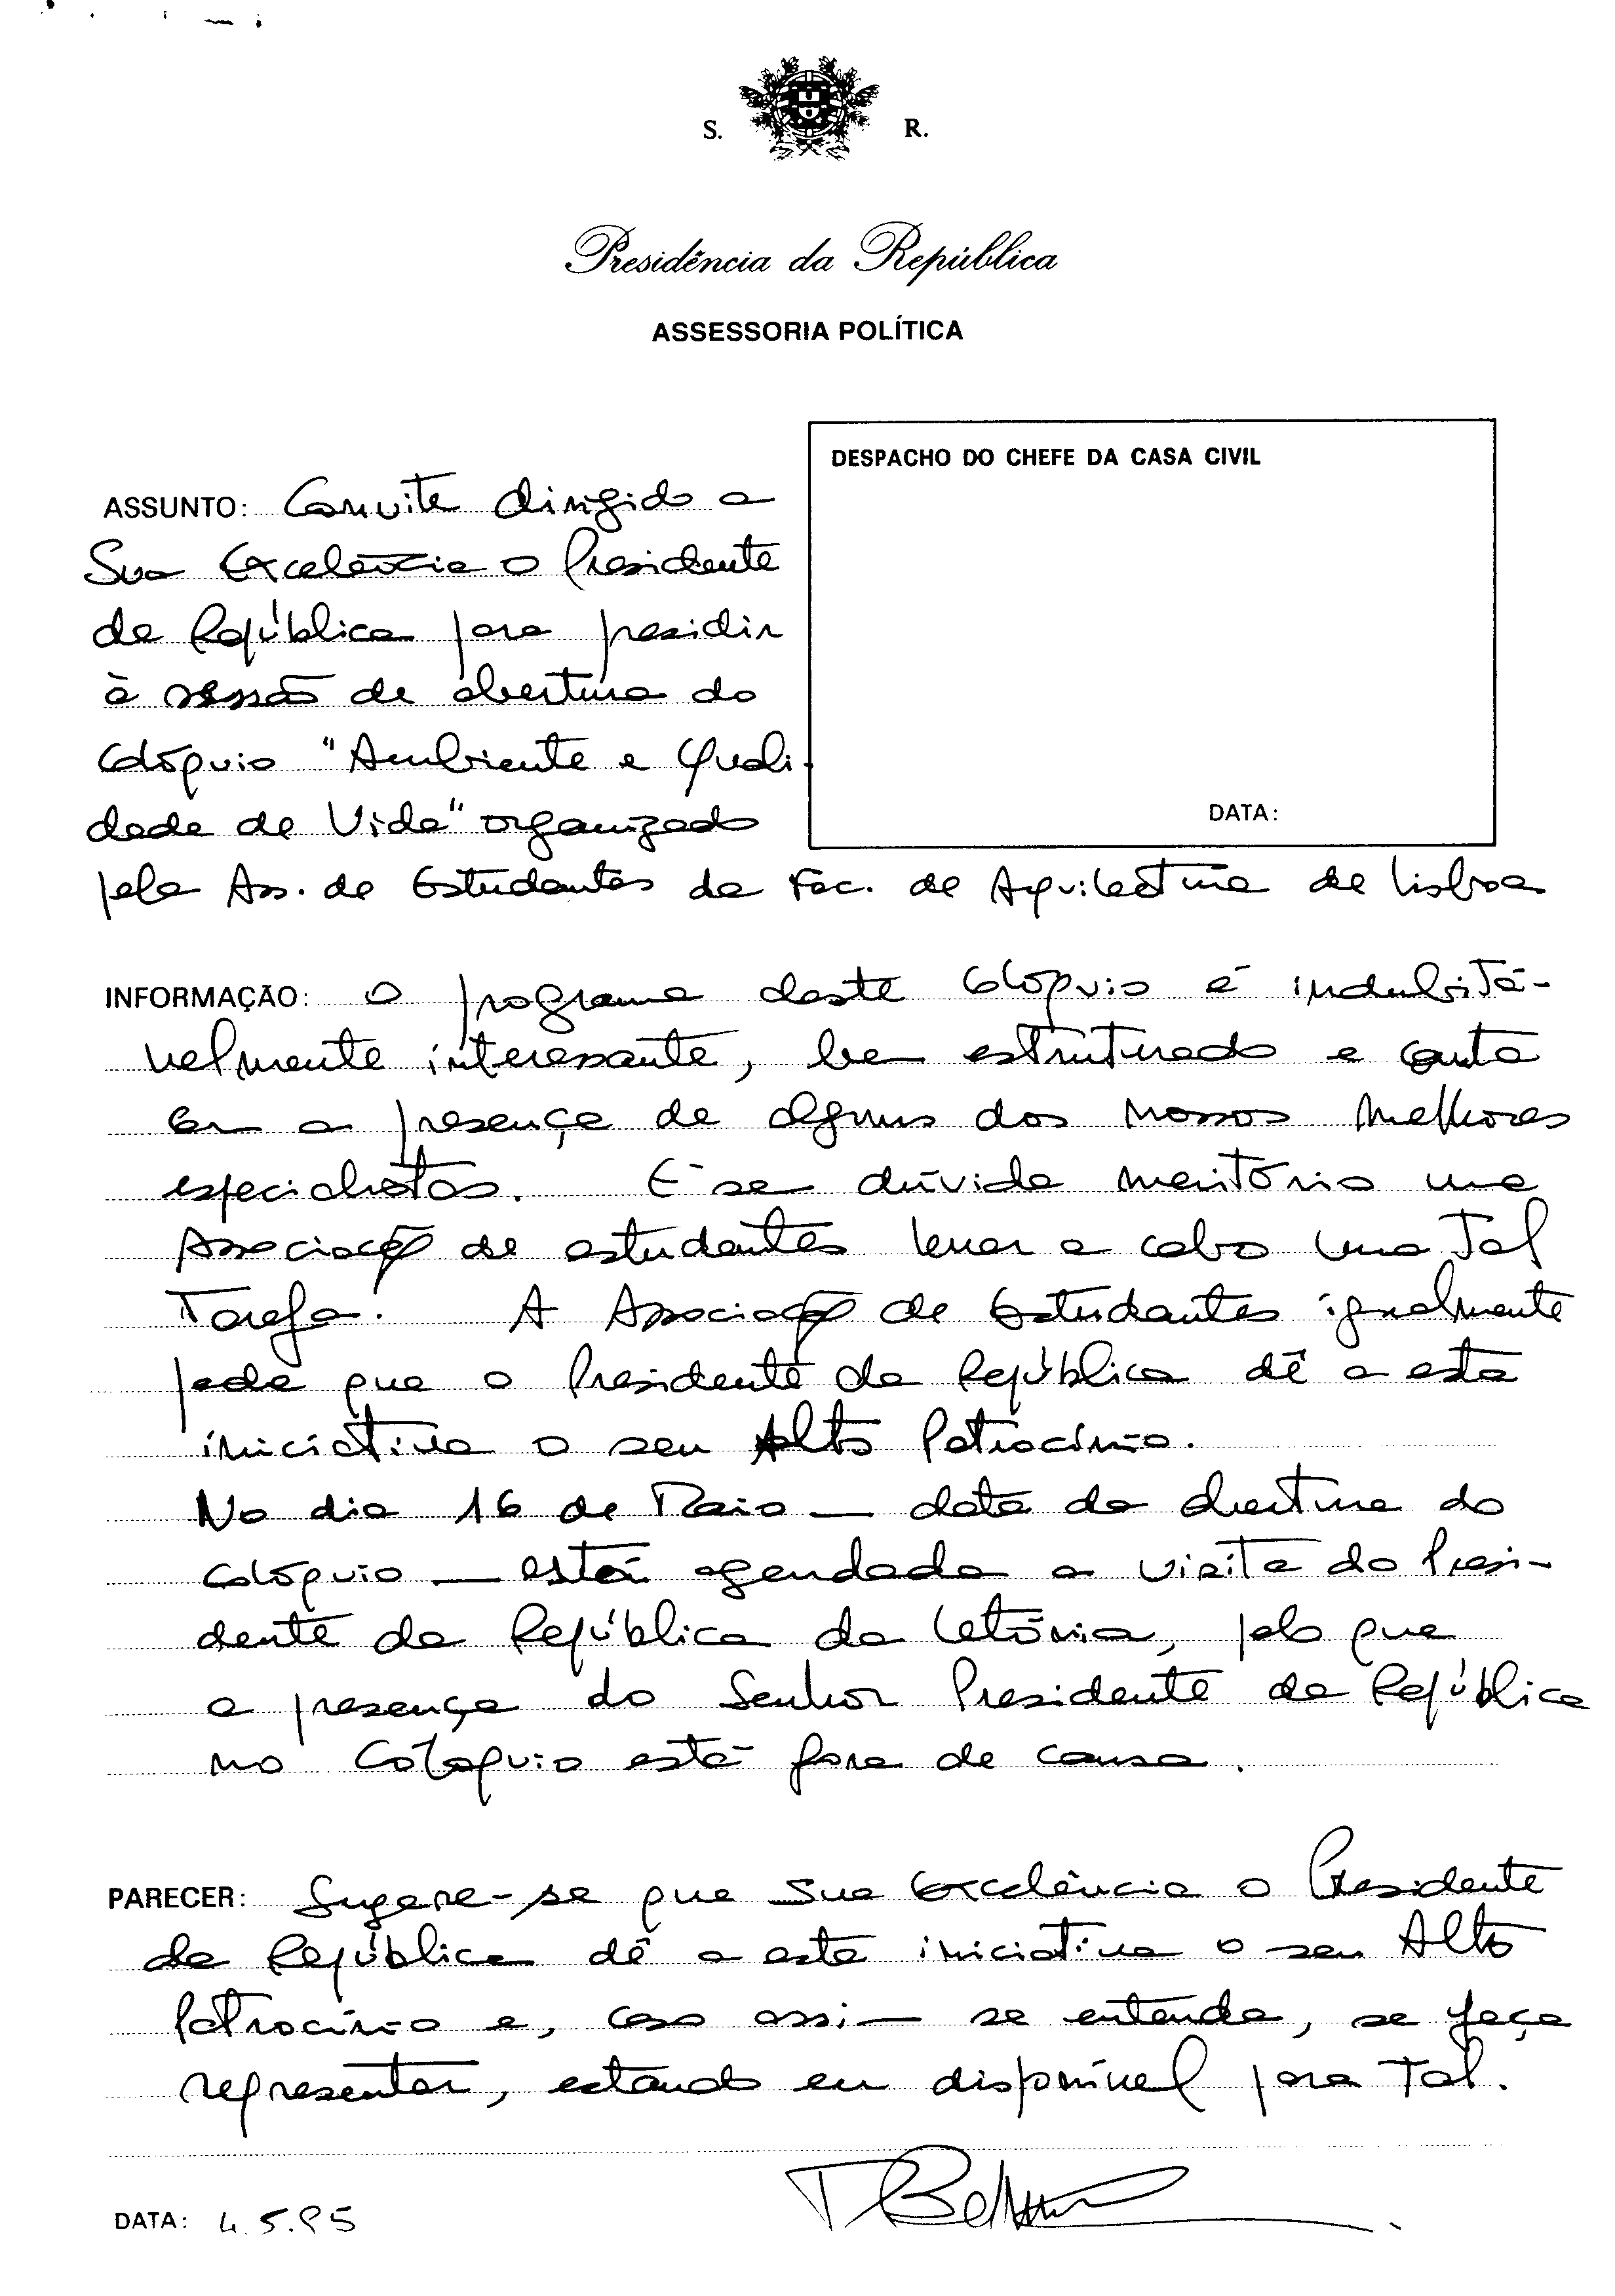 S. R.
Presidência da República
ASSESSORIA POLÍTICA
DESPACHO DO CHEFE DA CASA CIVIL
DATA:
ASSUNTO: Convite dirigido a
Sua Excelência o Presidente
da República para presidir
à sessão de abertura do
Colóquio "Ambiente e Quali-
dade de Vida" organizado
pela Ass. de Estudantes da Fac. de Arquitectura de Lisboa
INFORMAÇÃO: O programa deste Colóquio é indubitá-
velmente interessante, bem estruturado e conta
com a presença de alguns dos nossos melhores
especialistas. É sem dúvida meritório uma
Associação de estudantes levar a cabo uma tal
Tarefa. A Associação de Estudantes igualmente
pede que o Presidente da República dê a esta
iniciativa o seu Alto Patrocínio.
No dia 16 de Maio — data da abertura do
Colóquio — está agendada a visita do Presi-
dente da República da Letónia, pelo que
a presença do Senhor Presidente da República
no Colóquio está fora de causa.
PARECER: Sugere-se que Sua Excelência o Presidente
da República dê a esta iniciativa o seu Alto
Patrocínio e, caso assim se entenda, se faça
representar, estando eu disponível para tal.
DATA: 4.5.95